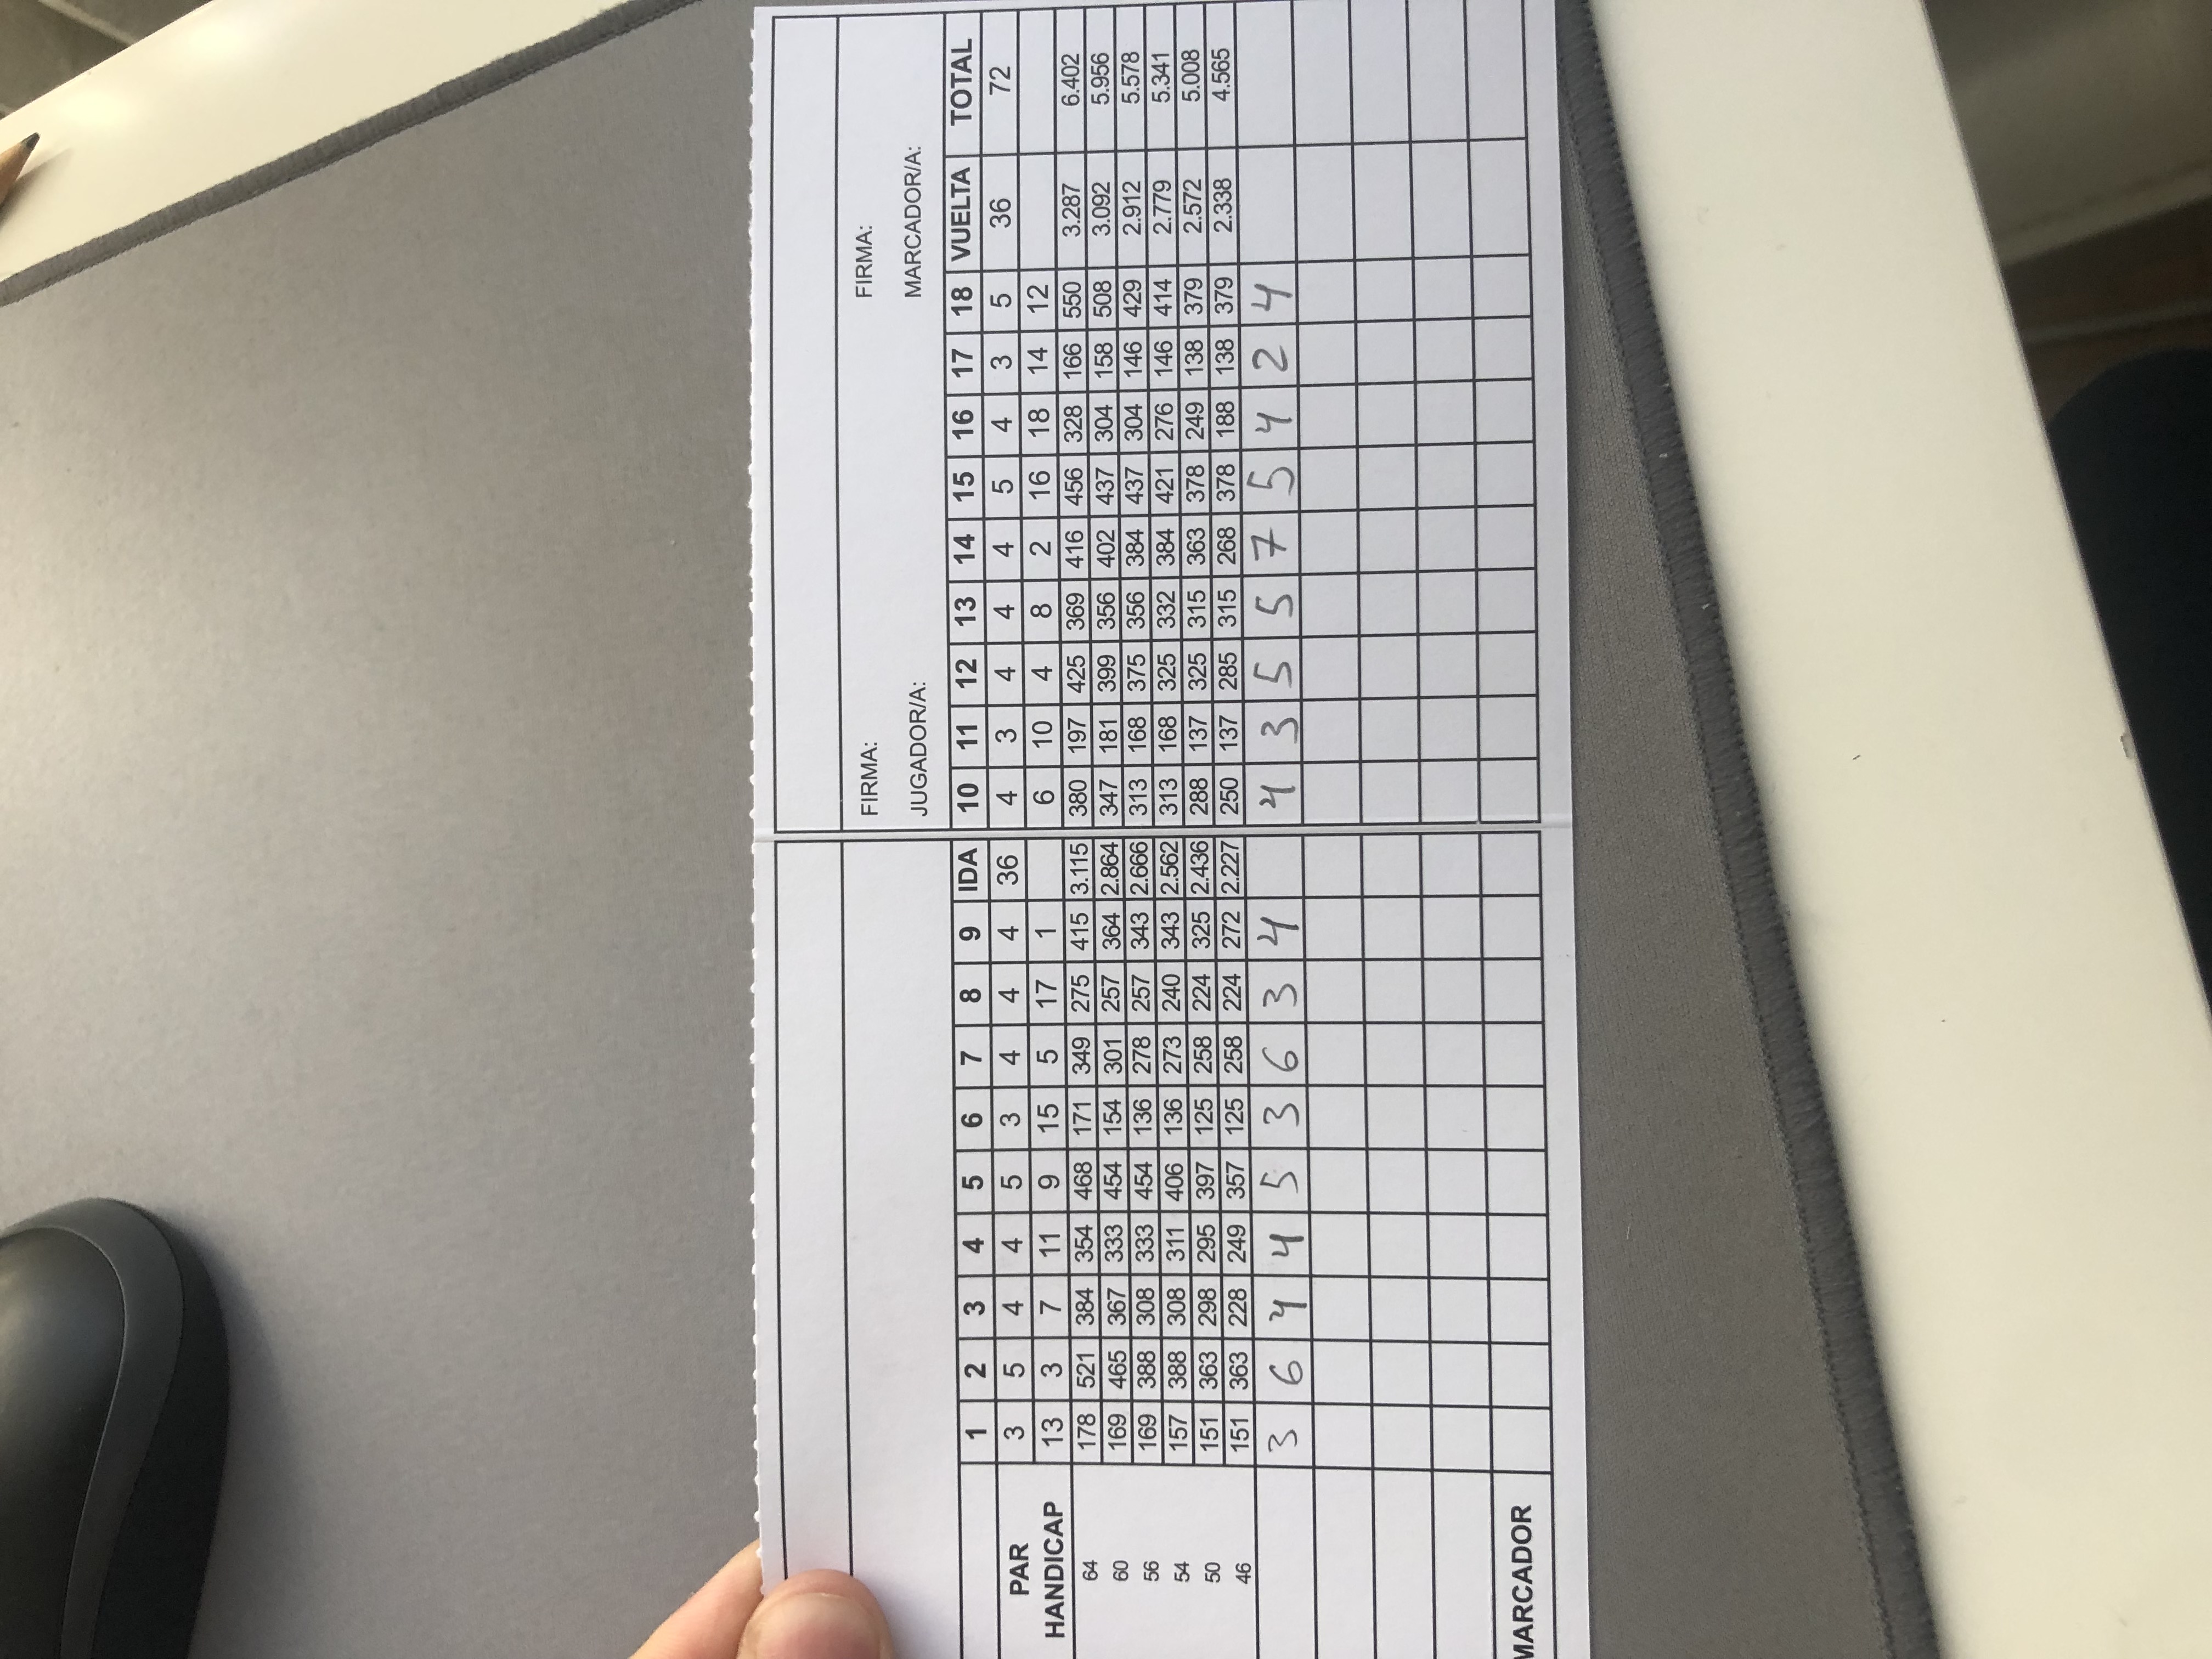 FIRMA: FIRMA:
JUGADOR/A: MARCADOR/A:
1 2 3 4 5 6 7 8 9 IDA 10 11 12 13 14 15 16 17 18 VUELTA TOTAL
PAR 3 5 4 4 5 3 4 4 4 36 4 3 4 4 4 5 4 3 5 36 72
HANDICAP 13 3 7 11 9 15 5 17 1 6 10 4 8 2 16 18 14 12
64 178 521 384 354 468 171 349 275 415 3.115 380 197 425 369 416 456 328 166 550 3.287 6.402
60 169 465 367 333 454 154 301 257 364 2.864 347 181 399 356 402 437 304 158 508 3.092 5.956
56 169 388 308 333 454 136 278 257 343 2.666 313 168 375 356 384 437 304 146 429 2.912 5.578
54 157 388 308 311 406 136 273 240 343 2.562 313 168 325 332 384 421 276 146 414 2.779 5.341
50 151 363 298 295 397 125 258 224 325 2.436 288 137 325 315 363 378 249 138 379 2.572 5.008
46 151 363 228 249 357 125 258 224 272 2.227 250 137 285 315 268 378 188 138 379 2.338 4.565
3 6 4 4 5 3 6 3 4 4 3 5 5 7 5 4 2 4
MARCADOR